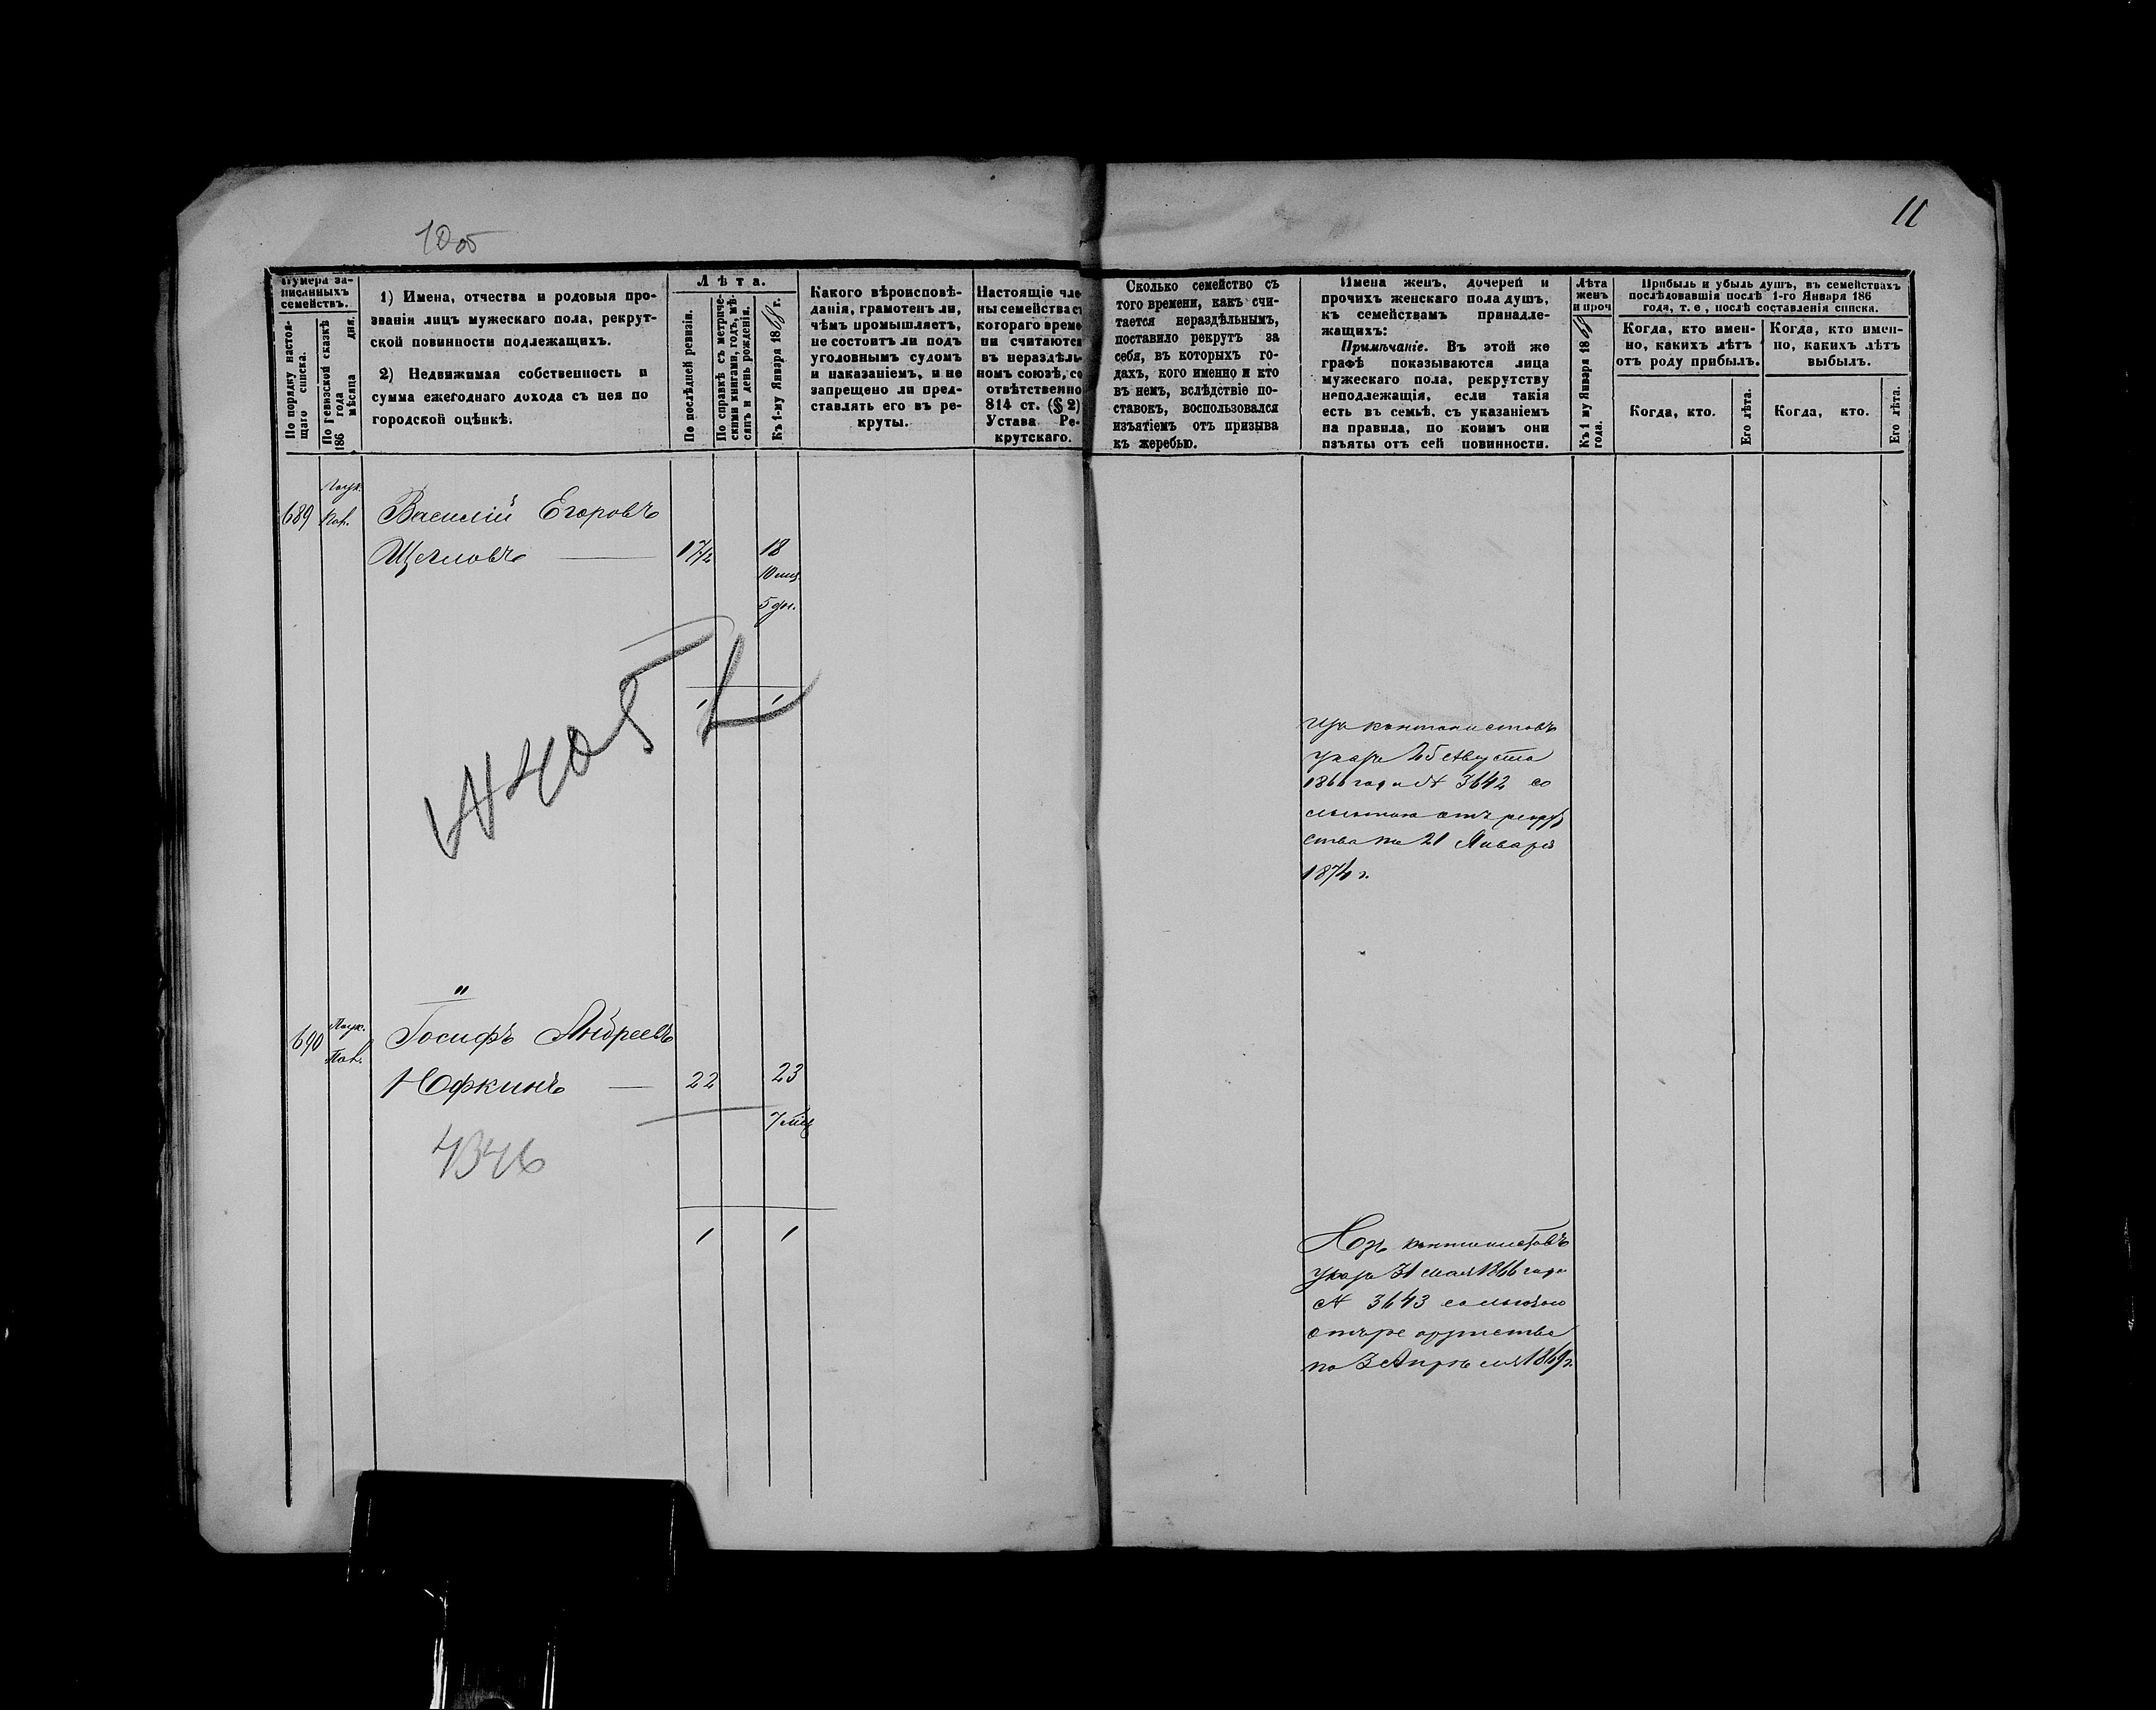 11
Нумера за-
писанныхъ
семействъ.
По порядку настоя-
щаго списка.
По ревизской сказкѣ
186 года
мѣсяца дня.
1) Имена, отчества и родовыя про-
званія лицъ мужескаго пола, рекрут-
ской повинности подлежащихъ.
2) Недвижимая собственность и
сумма ежегоднаго дохода съ нея по
городской оцѣнкѣ.
Лѣта.
По послѣдней ревизіи.
По справкѣ съ метриче-
скими книгами, годъ, мѣ-
сяцъ и день рожденія.
Къ 1-му Января 1868 г.
Какого вѣроисповѣ-
данія, грамотенъ ли,
чѣмъ промышляетъ,
не состоитъ ли подъ
уголовнымъ судомъ
и наказаніемъ, и не
запрещено ли пред-
ставлять его въ ре-
круты.
Настоящіе чле
ны семейства съ
котораго време
ни считаются
въ нераздѣль-
номъ союзѣ, со
отвѣтственно
814 ст. (§ 2)
Устава Ре-
крутскаго.
Сколько семейство съ
того времени, какъ счи-
тается нераздѣльнымъ,
поставило рекрутъ за
себя, въ которыхъ го-
дахъ, кого именно и кто
въ немъ, вслѣдствіе по-
ставокъ, воспользовался
изъятіемъ отъ призыва
къ жеребью.
Имена женъ, дочерей и
прочихъ женскаго пола душъ,
къ семействамъ принадле-
жащихъ:
Примѣчаніе. Въ этой же
графѣ показываются лица
мужескаго пола, рекрутству
неподлежащія, если такія
есть въ семьѣ, съ указаніемъ
на правила, по коимъ они
изъяты отъ сей повинности.
Лѣта
женъ
и проч
Къ 1 му Января 1868
года.
Прибыль и убыль душъ, въ семействахъ
послѣдовавшія послѣ 1-го Января 186
года, т. е , послѣ составленія списка.
Когда, кто имен-
но, какихъ лѣтъ
отъ роду прибылъ.
Когда, кто имен-
но, какихъ лѣтъ
выбылъ.
Когда, кто.
Его лѣта.
Когда, кто.
Его лѣта.
689 Василій Егоровъ
Щегловъ 17½ 18
10 мц
5 дн.
1 1
Изъ кантонистовъ
указъ 25 Августа
1866 года № 3642 со
льготою отъ рекрут
ства по 21 Января
1874 г.
690 Іосифъ Андреевъ
Юфкинъ 22 23
7 мц
4346
1 1
Изъ кантонистовъ
указъ 31 мая 1866 года
№ 3643 со льготою
отъ рекрутства
по 3 Апрѣля 1869 г.